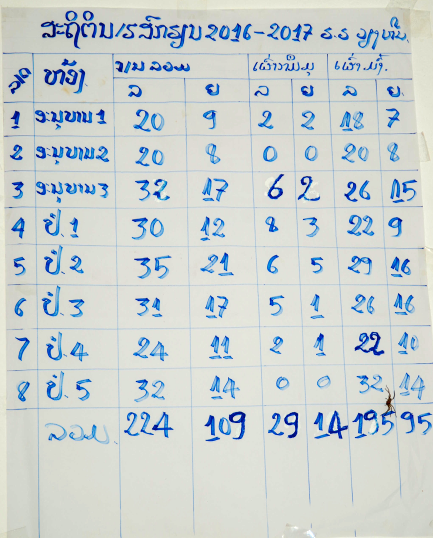 ສະຖິຕິນ/ຮສົກຮຽນ 2016-2017 ຮ.ຮ
ລ/ດ ຫ້ອງ ຈ/ນ ລວມ ເຜົ່າມົ້ງ
ລ ຍ ລ ຍ ລ ຍ
1 ອະນຸບານ 1 20 9 2 2 18 7
2 ອະນຸບານ 2 20 8 0 0 20 8
3 ອະນຸບານ 3 32 17 6 2 26 15
4 ປໍ. 1 30 12 8 3 22 9
5 ປໍ. 2 35 21 6 5 29 16
6 ປໍ. 3 31 17 5 1 26 16
7 ປໍ. 4 24 11 2 1 22 10
8 ປໍ. 5 32 14 0 0 32 14
ລວມ. 224 109 29 14 195 95